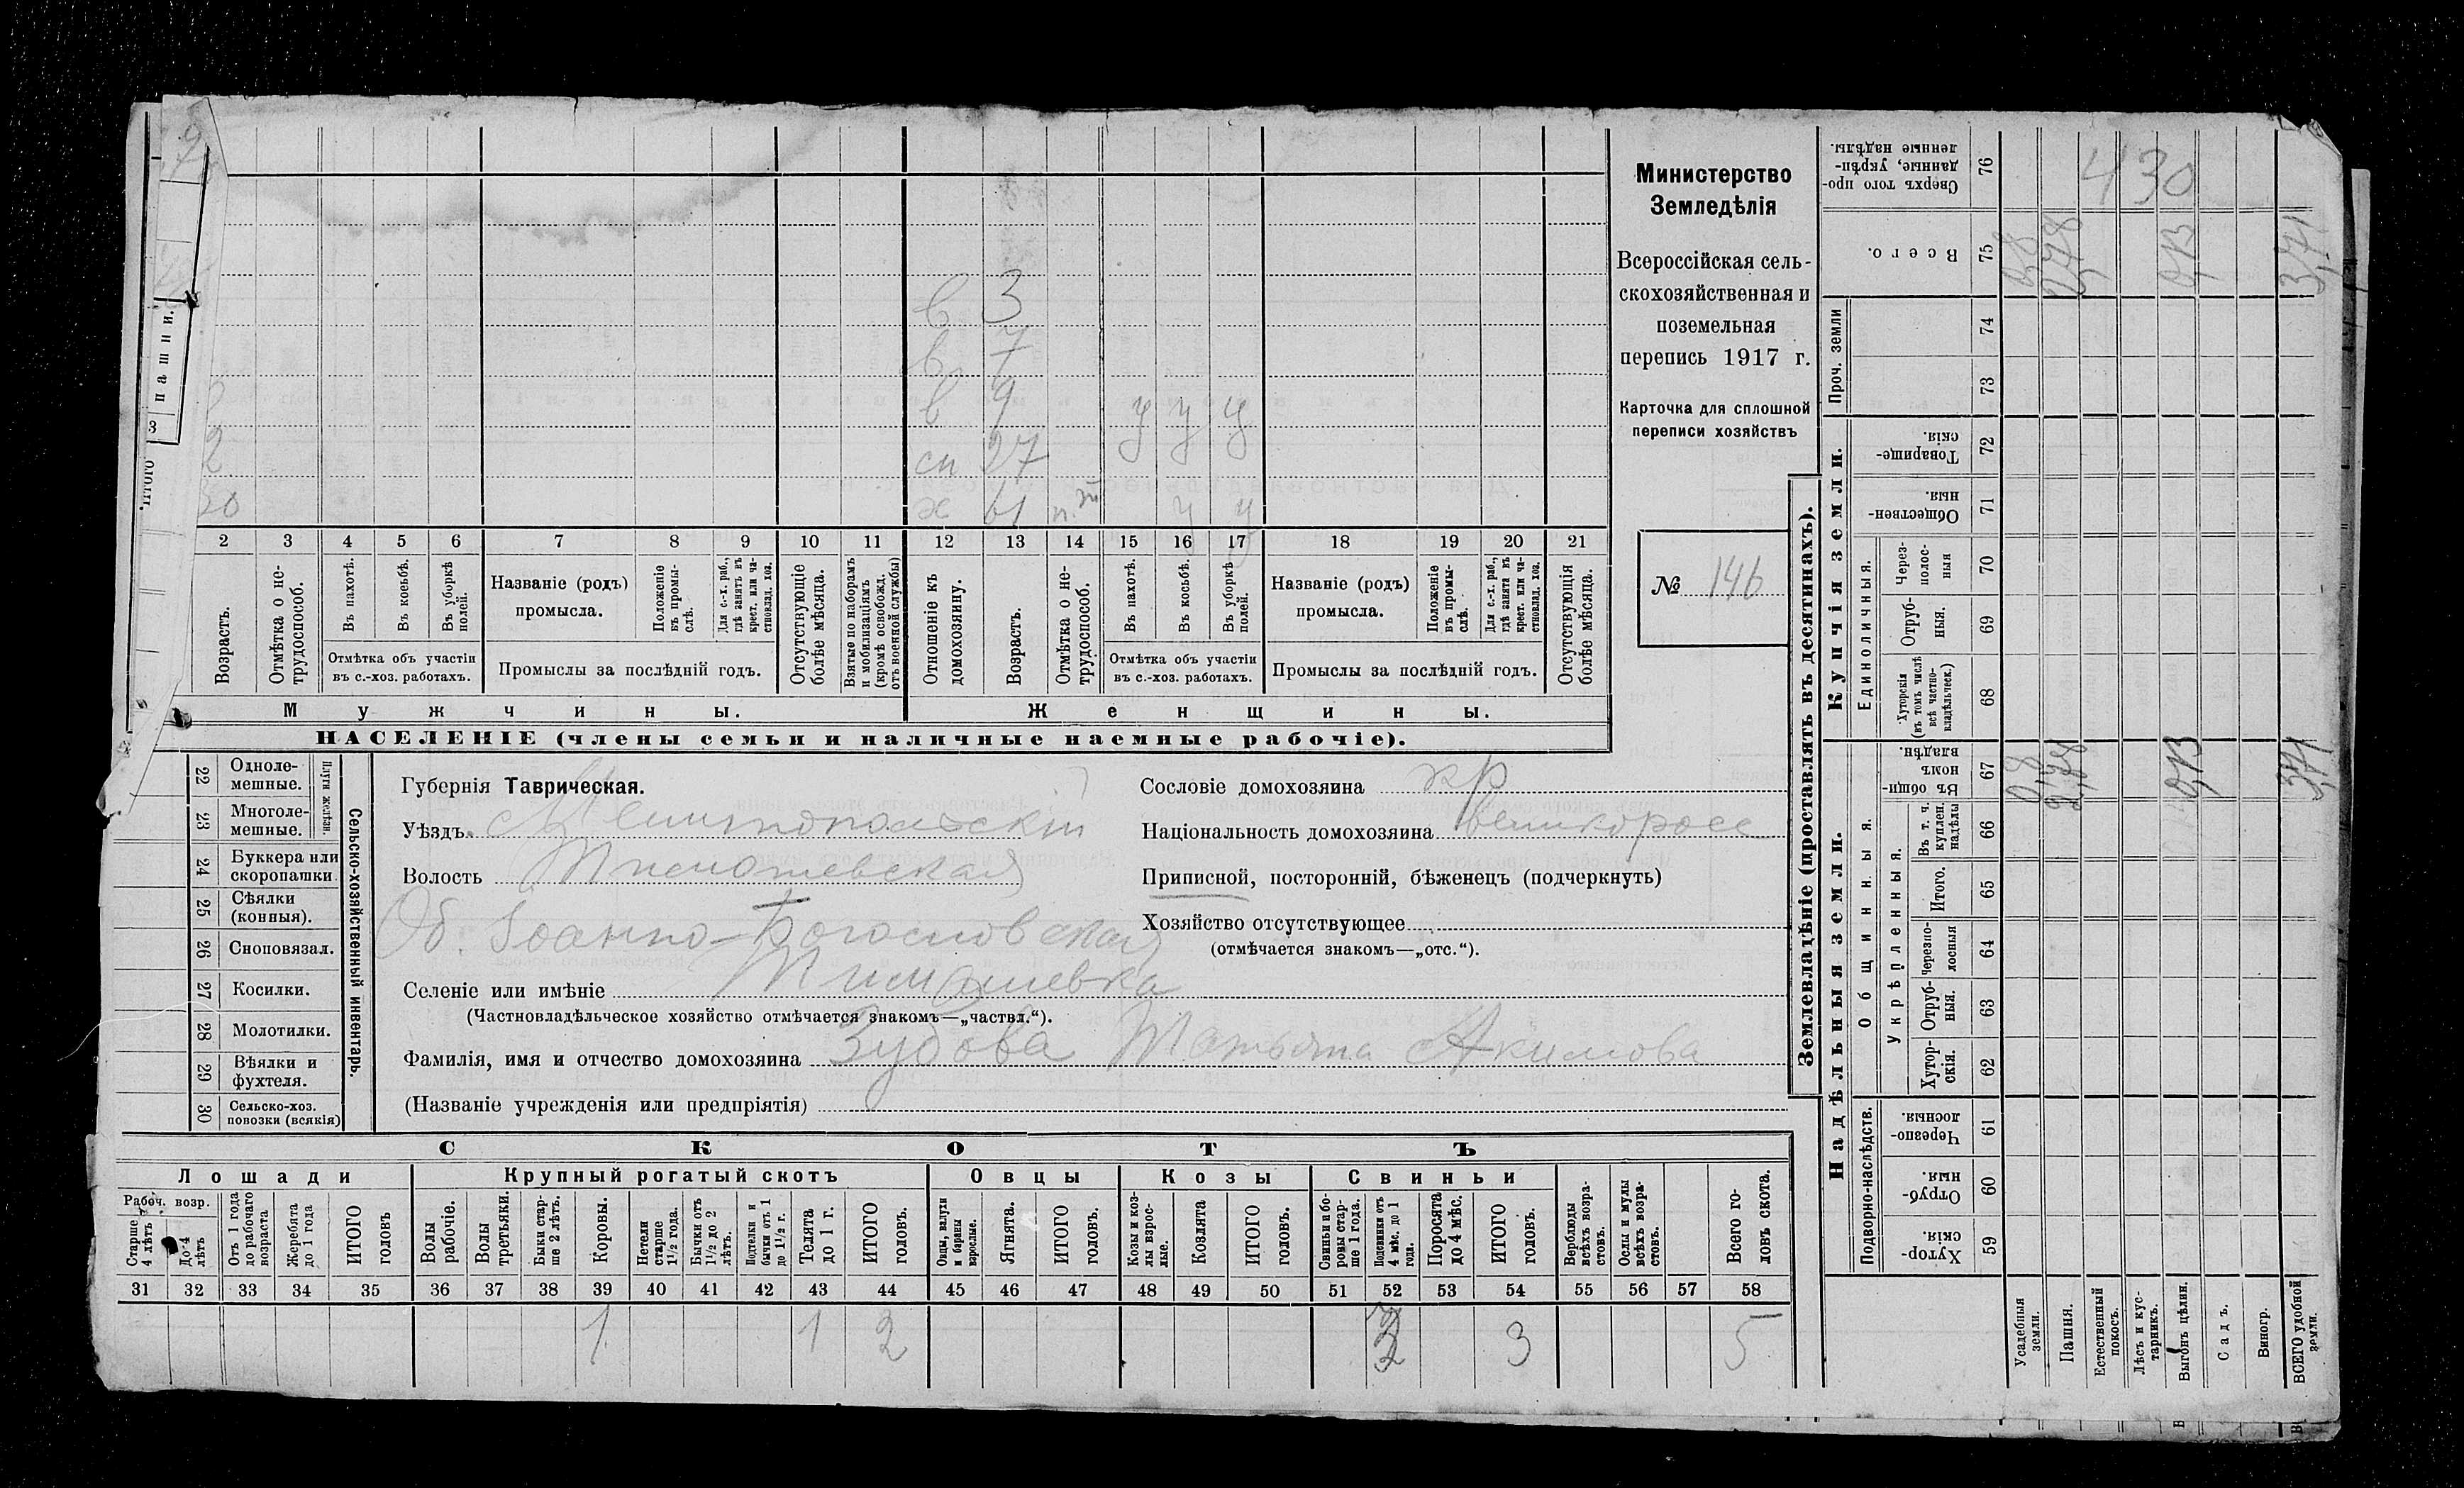 Министерство
Земледѣлія
Всероссійская сель-
скохозяйственная и
поземельная
перепись 1917 г.
Карточка для сплошной
переписи хозяйствъ
№ 146
пашни.
3
Итого
в 3
в 7
в 9 у у у
2 сп 27
30 ж 61 у у
2 3 4 5 6 7 8 9 10 11 12 13 14 15 16 17 18 19 20 21
Возрастъ.
Отмѣтка о не-
трудоспособ.
Въ пахотѣ.
Въ косьбѣ.
Въ уборкѣ
полей.
Отмѣтка объ участіи
въ с.-хоз. работахъ.
Названіе (родъ)
промысла.
Положеніе
въ промы-
слѣ.
Для с.-х. раб.,
гдѣ занятъ въ
крест. или ча-
стновлад. хоз.
Промыслы за послѣдній годъ.
Отсутствующіе
болѣе мѣсяца.
Взятые по наборамъ
и мобилизаціямъ
(кромѣ освобожд.
отъ военной службы)
Отношеніе къ
домохозяину.
Возрастъ.
Отмѣтка о не-
трудоспособ.
Въ пахотѣ.
Въ косьбѣ.
Въ уборкѣ
полей.
Отмѣтка объ участіи
въ с.-хоз. работахъ.
Названіе (родъ)
промысла.
Положеніе
въ промы-
слѣ.
Для с.-х. раб.,
гдѣ занята въ
крест. или ча-
стновлад. хоз.
Промыслы за послѣдній годъ.
Отсутствующія
болѣе мѣсяца.
Мужчины.
Женщины.
НАСЕЛЕНІЕ (члены семьи и наличные наемные рабочіе).
22 Одноле-
мешные.
23 Многоле-
мешные.
Плуги желѣзн.
24 Буккера или
скоропашки
25 Сѣялки
(конныя).
26 Сноповязал.
27 Косилки.
28 Молотилки.
29 Вѣялки и
фухтеля.
30 Сельско-хоз.
повозки (всякія)
Сельско-хозяйственный инвентарь.
Губернія Таврическая.
Уѣздъ Мелитопольскій
Волость Тимошевская
Об. Іоанно-Богословская
Селеніе или имѣніе Тимошевка
(Частновладѣльческое хозяйство отмѣчается знакомъ—„частвл.“).
Фамилія, имя и отчество домохозяина Зубова Татьяна Акимова
(Названіе учрежденія или предпріятія)
Сословіе домохозяина кр
Національность домохозяина великоросс
Приписной, посторонній, бѣженецъ (подчеркнуть)
Хозяйство отсутствующее
(отмѣчается знакомъ—„отс.“).
СКОТЪ
Лошади
Крупный рогатый скотъ
Овцы
Козы
Свиньи
Рабоч. возр.
Старше
4 лѣтъ
До 4
лѣтъ
Отъ 1 года
до рабочаго
возраста
Жеребята
до 1 года
ИТОГО
головъ
Волы
рабочіе.
Волы
третьяки.
Быки стар-
ше 2 лѣтъ.
Коровы.
Нетели
старше
1½ года.
Бычки отъ
1½ до 2
лѣтъ.
Подтелки и
бычки отъ 1
до 1½ г.
Телята
до 1 г.
ИТОГО
головъ.
Овцы, валухи
и бараны
взрослые.
Ягнята.
ИТОГО
головъ.
Козы и коз-
лы взрос-
лые.
Козлята
ИТОГО
головъ.
Свиньи и бо-
ровы стар-
ше 1 года.
Подсвинки отъ
4 мѣс. до 1
года.
Поросята
до 4 мѣс.
ИТОГО
головъ.
Верблюды
всѣхъ возра-
стовъ.
Ослы и мулы
всѣхъ возра-
стовъ.
Всего го-
ловъ скота.
31 32 33 34 35 36 37 38 39 40 41 42 43 44 45 46 47 48 49 50 51 52 53 54 55 56 57 58
1 1 2 3 3 5
Землевладѣніе (проставлять въ десятинахъ).
Надѣльныя земли.
Купчія земли.
Проч. земли
Подворно-наслѣдств.
Общинныя.
Укрѣпленныя.
Единоличныя.
Сверхъ того про-
данные, укрѣп-
ленные надѣлы.
76 430
Всего.
75 2,48 0,13 3,41
74
73
Товарище-
скія.
72
Обществен-
ныя.
71
Через-
полос-
ныя
70
Отруб-
ныя.
69
Хуторскія
(въ томъ числѣ
всѣ частно-
владѣльческ.)
68
Въ общи-
номъ
владѣн.
67 0,8 2,48 0,13 3,41
Въ т. ч.
куплен.
надѣлы
66
Итого.
65
Черезпо-
лосныя
64
Отруб-
ныя.
63
Хутор-
скія.
62
Черезпо-
лосныя.
61
Отруб-
ныя.
60
Хутор-
скія.
59
Усадебныя
земли.
Пашня.
Естественный
покосъ.
Лѣсъ и кус-
тарникъ.
Выгонъ цѣлин.
Садъ.
Виногр.
ВСЕГО удобной
земли.